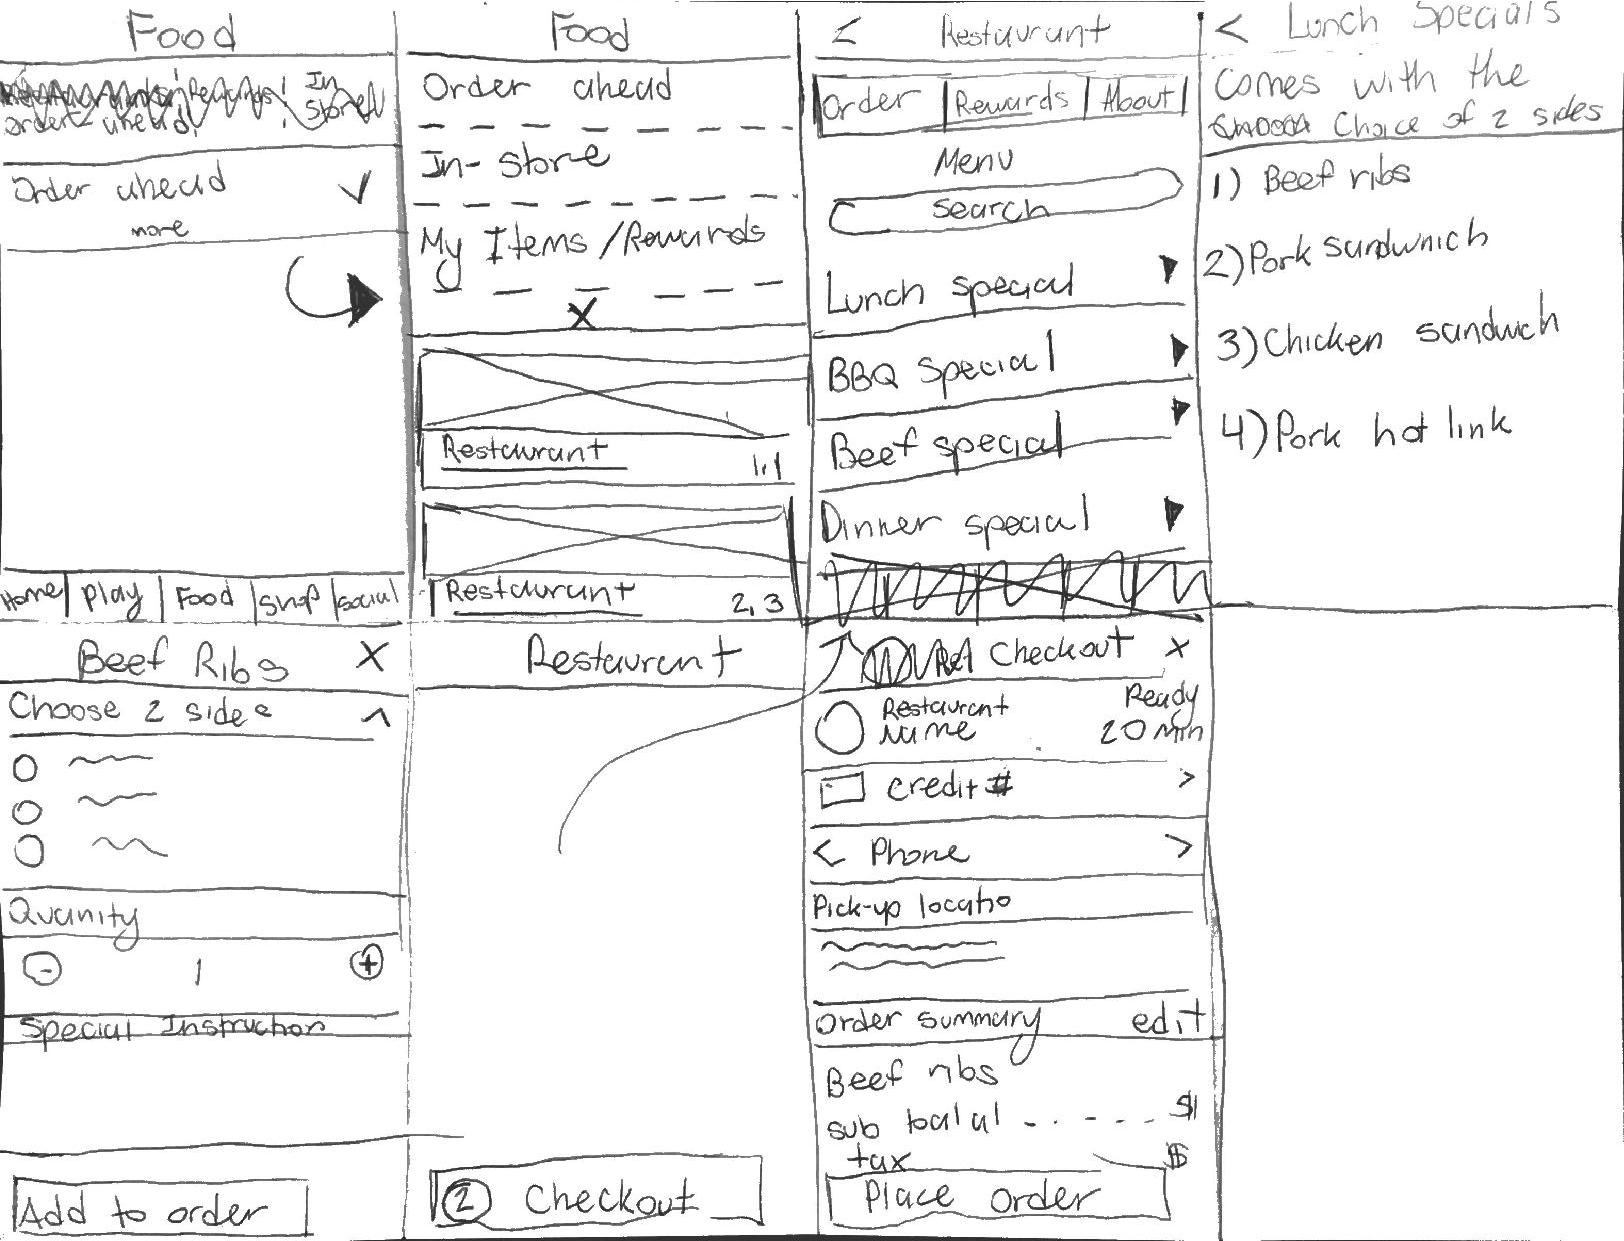 Food
In
Store
order ahead
Order ahead
more
Home Play Food Shop Social
Food
Order ahead
In-store
My Items/Rewards
X
Restaurant
1,1
Restaurant
2,3
< Restaurant
Order Rewards About
Menu
search
Lunch special
BBQ special
Beef special
Dinner special
< Lunch Specials
Comes with the
Choice of 2 sides
1) Beef ribs
2) Pork sandwnich
3) Chicken sandwich
4) Pork hot link
Beef Ribs X
Choose 2 sides ^
Quanity
- 1 +
Special Instruction
Add to order
Restaurant
2 Checkout
Checkout x
Restaurant Ready
Name 20 min
credit # >
< Phone >
Pick-up locatio
Order summary edit
Beef ribs
sub toalal - - - - - $1
tax $
Place order